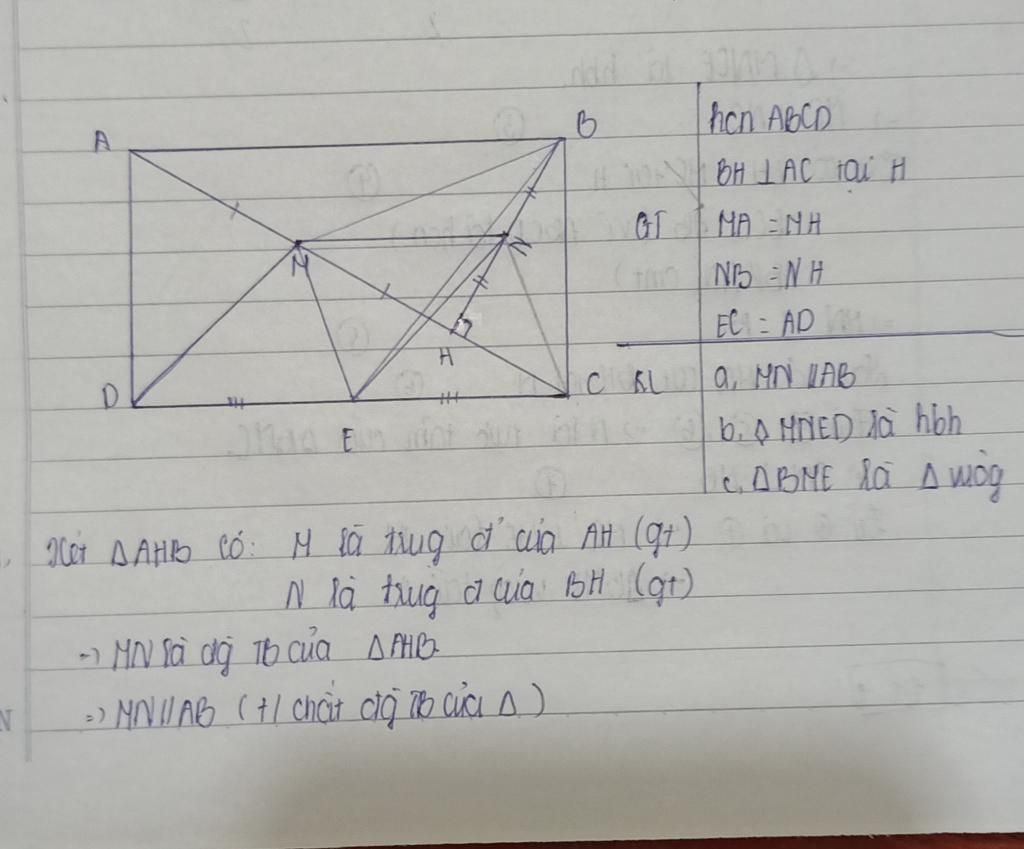 A
B
M
N
H
D
E
C
GT
hcn ABCD
BH ⊥ AC tại H
MA = MH
NB = NH
EC = AD
KL
a, MN // AB
b, ◊ MNED là hbh
c, ΔBME là Δ vuôg
Xét ΔAHB có: M là trug đ' của AH (gt)
N là trug đ của BH (gt)
=> MN là đg Tb của ΔAHB
=> MN // AB (t/ chất đg Tb của Δ)
N